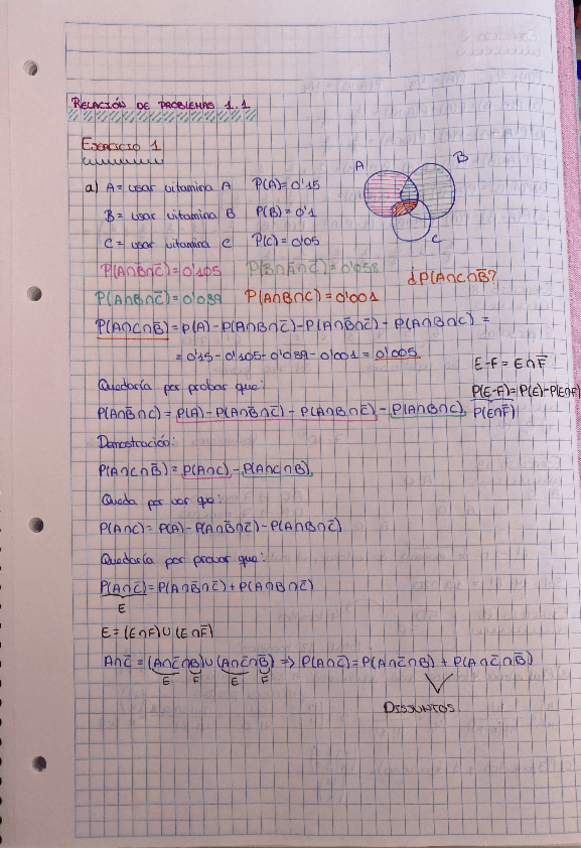 RELACIÓN DE PROBLEMAS 1.1
EJERCICIO 1
a) A = usar vitamina A P(A)=0'15
B = usar vitamina B P(B)=0'1
C = usar vitamina C P(C)=0'05
A
B
C
P(A∩B̄∩C̄)=0'105 P(B∩Ā∩C̄)=0'058
¿P(A∩C∩B̄)?
P(A∩B∩C̄)=0'039 P(A∩B∩C)=0'001
P(A∩C∩B̄)=P(A)-P(A∩B∩C̄)-P(A∩B̄∩C̄)-P(A∩B∩C) =
= 0'15-0'105-0'039-0'001=0'005
E-F = E∩F̄
P(E-F)=P(E)-P(E∩F)
P(E∩F̄)
Quedaría por probar que:
P(A∩B̄∩C)=P(A)-P(A∩B∩C̄)-P(A∩B̄∩C̄)-P(A∩B∩C)
Demostración:
P(A∩C∩B̄)=P(A∩C)-P(A∩C∩B)
Queda por ver que:
P(A∩C)=P(A)-P(A∩B̄∩C̄)-P(A∩B∩C̄)
Quedaría por probar que:
P(A∩C̄)=P(A∩B̄∩C̄)+P(A∩B∩C̄)
E
E=(E∩F)∪(E∩F̄)
A∩C̄=(A∩C̄∩B)∪(A∩C̄∩B̄)=>P(A∩C̄)=P(A∩C̄∩B)+P(A∩C̄∩B̄)
E F E F
DISJUNTOS